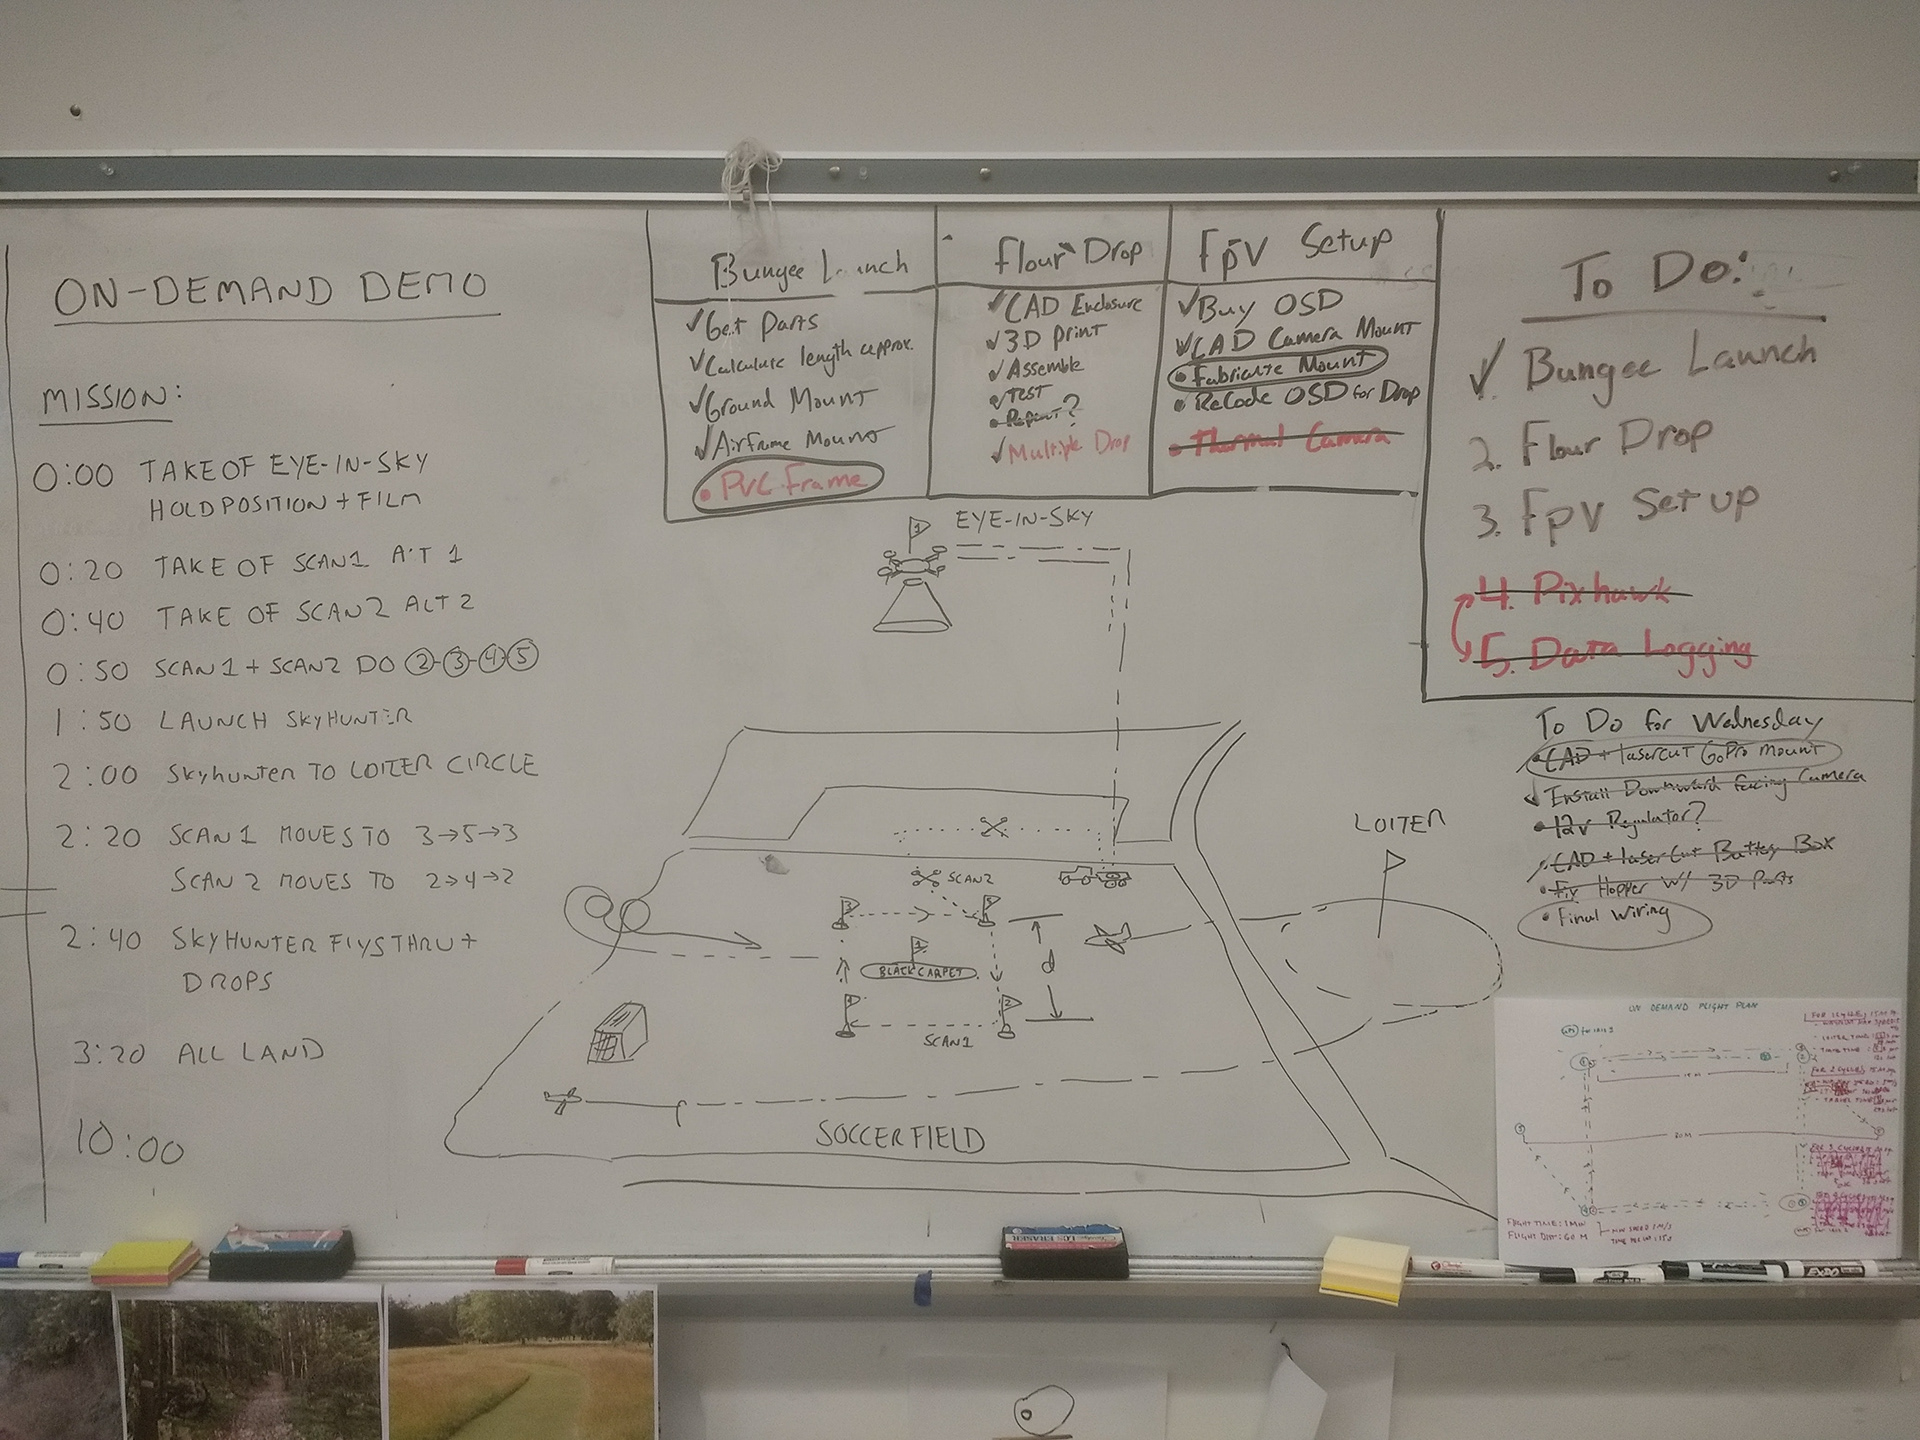 ON-DEMAND DEMO
MISSION:
0:00 TAKEOF EYE-IN-SKY
HOLD POSITION + FILM
0:20 TAKE OF SCAN1 A T 1
0:40 TAKE OF SCAN2 ALT 2
0:50 SCAN1 + SCAN2 DO 2-3-4-5
1:50 LAUNCH SKYHUNTER
2:00 SKYHUNTER TO LOITER CIRCLE
2:20 SCAN1 MOVES TO 3→5→3
SCAN 2 MOVES TO 2→4→2
2:40 SKYHUNTER FLYS THRU +
DROPS
3:20 ALL LAND
10:00
Bungee L unch
✓Get Parts
✓Calculate length approx.
✓Ground Mount
✓Airframe Mount
• PVC Frame
Flour Drop
✓CAD Enclosure
✓3D Print
✓Assemble
✓TEST
• Reprint?
✓Multiple Drop
Fpv Setup
✓Buy OSD
✓CAD Camera Mount
• Fabricate Mount
• ReCode OSD for Drop
• Thermal Camera
To Do:
✓. Bungee Launch
2. Flour Drop
3. Fpv Setup
4. Pixhawk
5. Data Logging
To Do for Wednesday
• CAD + lasercut GoPro mount
✓ Install Downward facing Camera
• 12v Regulator?
CAD + laser Cut Battery Box
• Fix Hopper w/ 3D Parts
• Final Wiring
1
EYE-IN-SKY
LOITER
SCAN2
3
1
BLACK CARPET
d
2
SCAN1
SOCCER FIELD
ON DEMAND FLIGHT PLAN
20 M
FLIGHT TIME: 1 MIN
FLIGHT DIST: 60 M
MIN SPEED 1 M/S